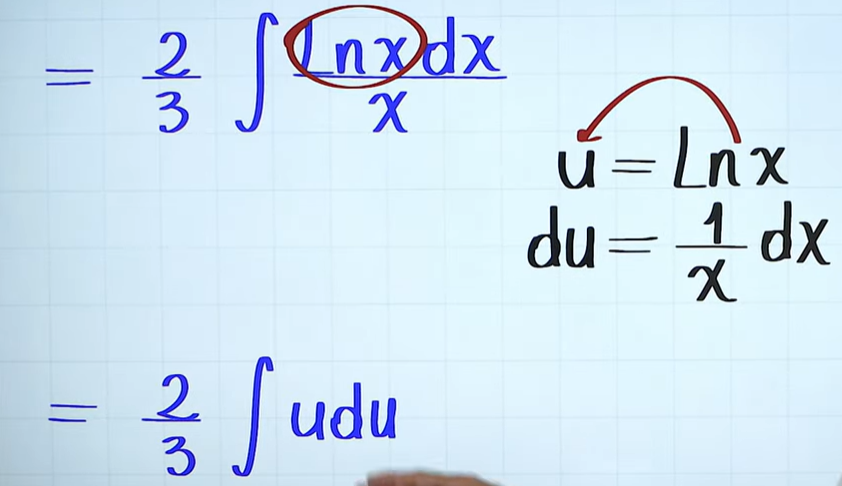 = 2/3 ∫ Lnx dx / x
u = Lnx
du = 1/x dx
= 2/3 ∫ udu